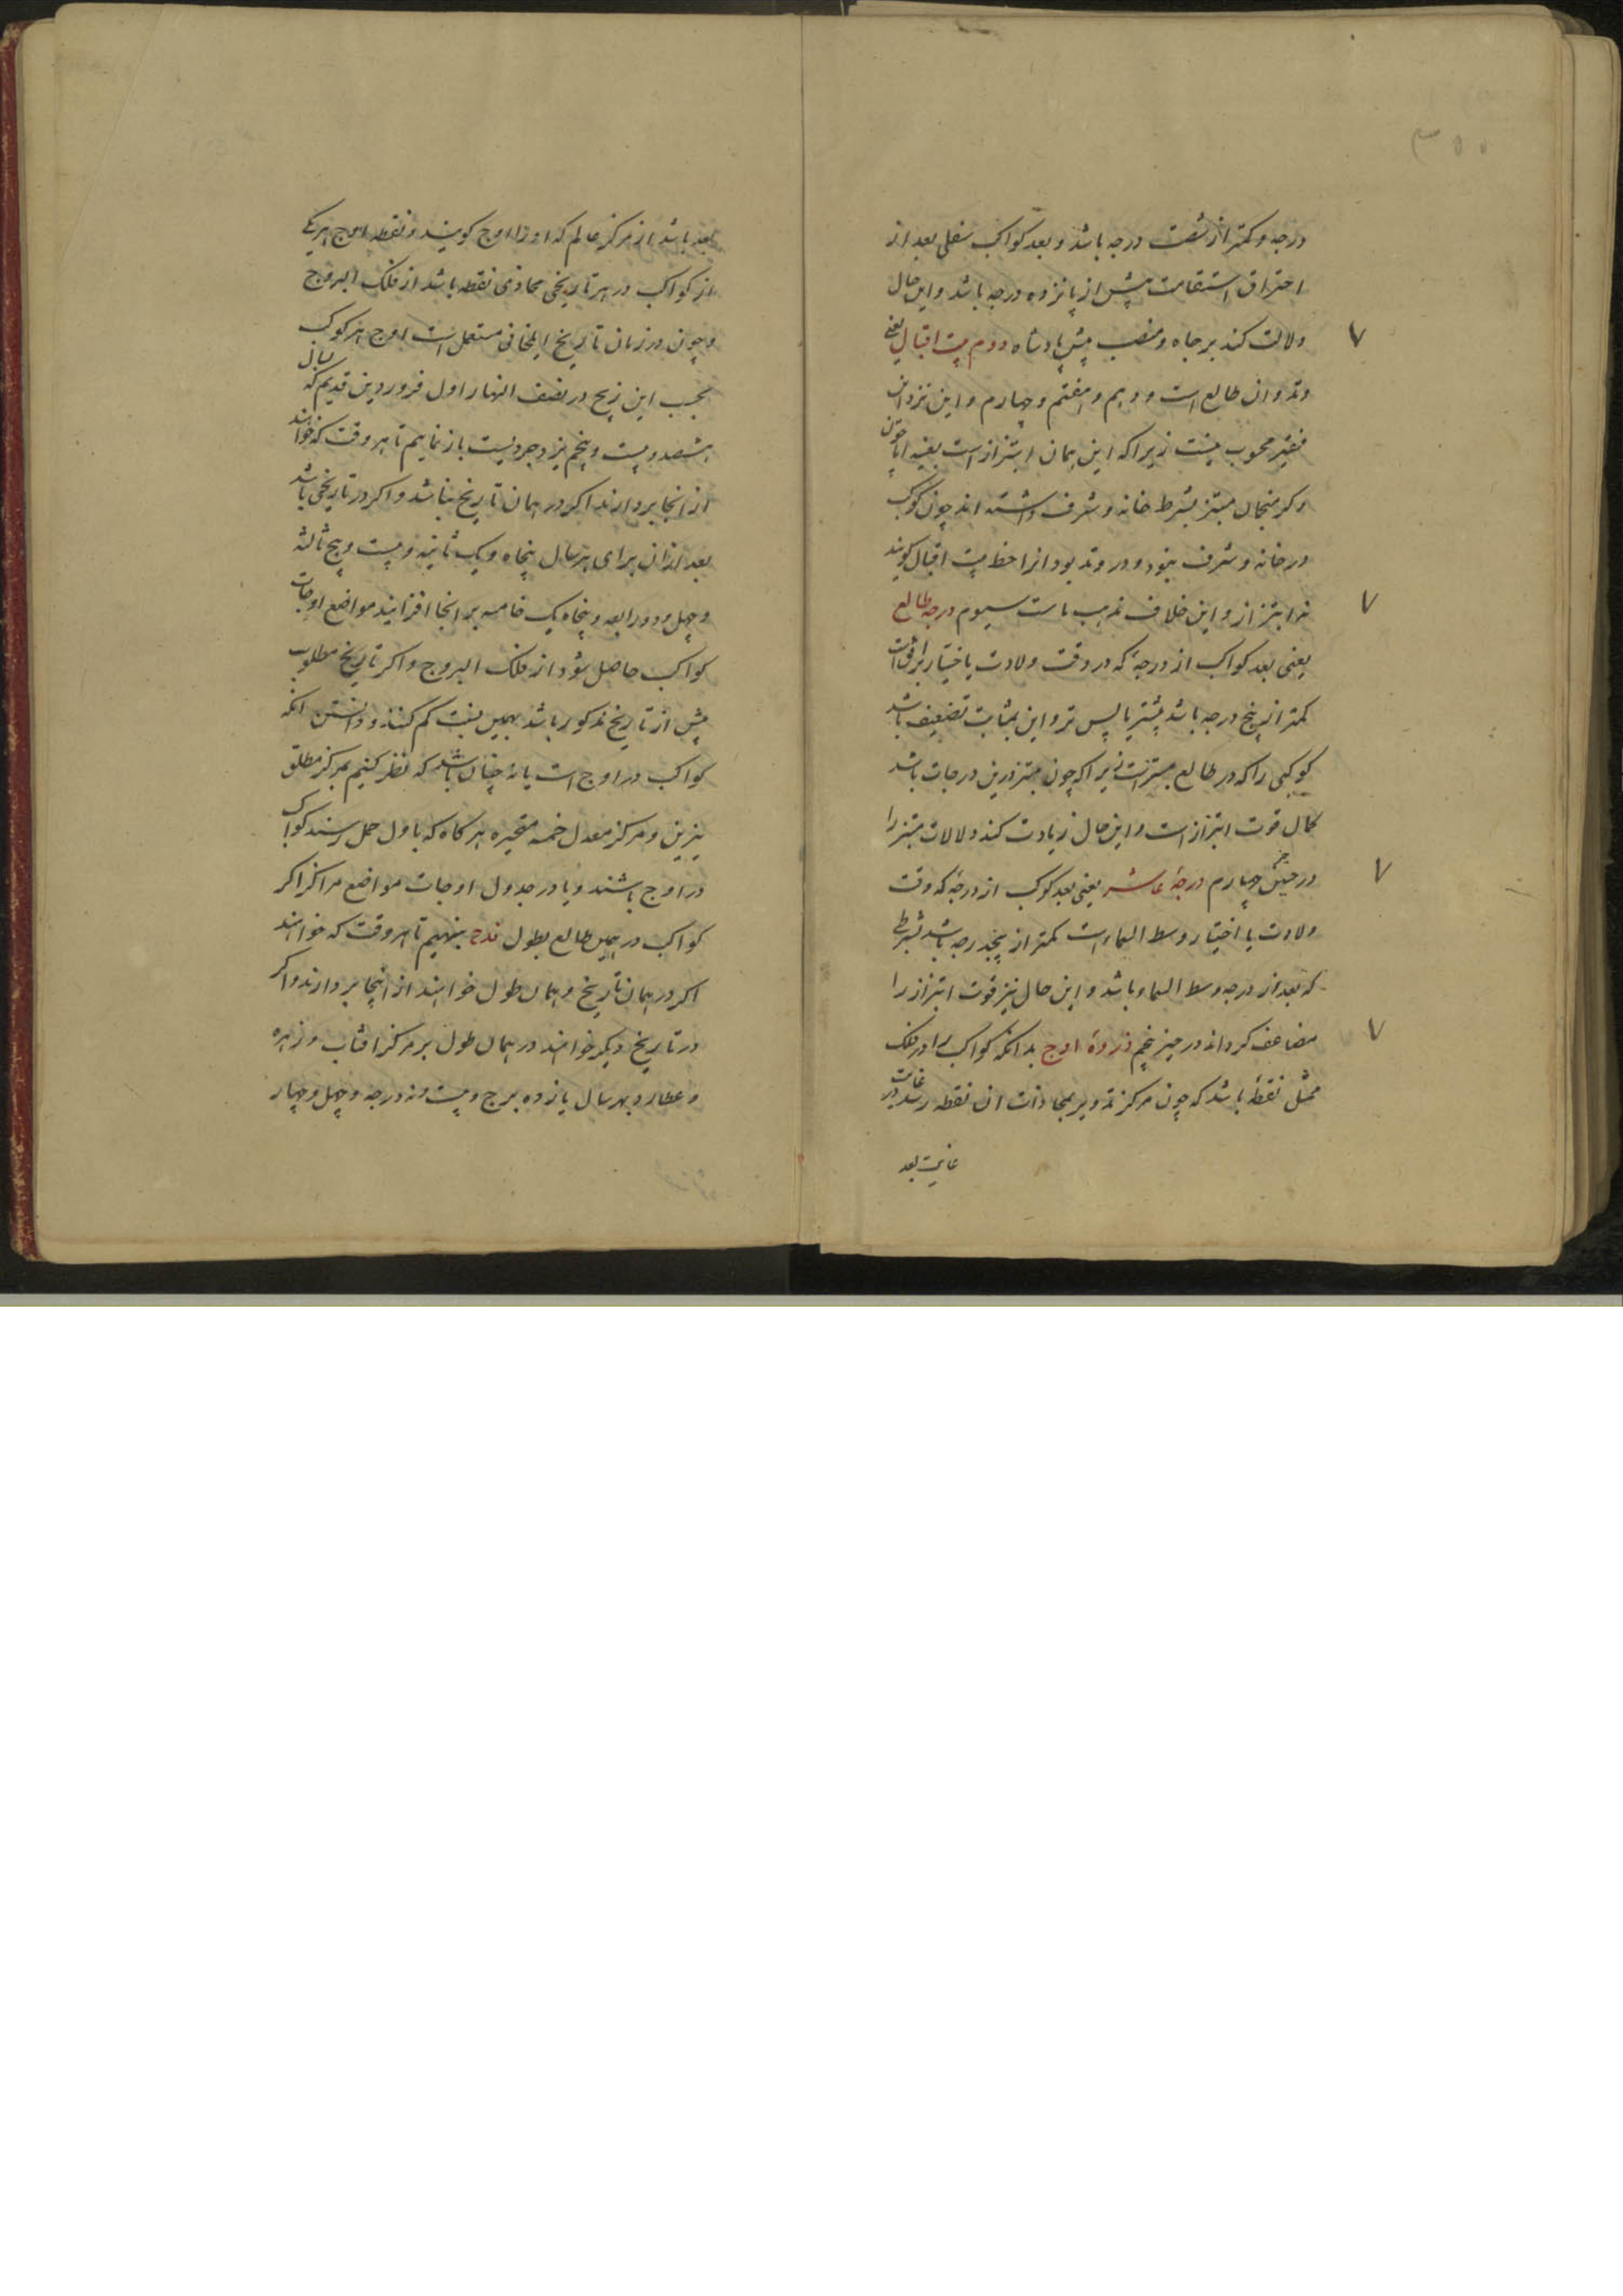 ۳۵۵
درجه و کمتر از شصت درجه باشد و بعد کواکب سفلی بعد از
احتراق استقامت پیش از پانزده درجه باشد و این حال
دلالت کند بر جاه و منصب پیش پادشاه دوم بیت اقبال یعنی
وتد و ان طالع است و دهم و هفتم و چهارم و این نزد این
فقیر محبوب نیست زیرا که این همان ابتزاز است بعینه اما چون
دکر منجمان مبتز بشرط خانه و شرف داشته اند چون کوکب
در خانه و شرف نبود و در وتد بود انرا حظ بیت اقبال کویند
نه ابتزاز و این خلاف مذهب ماست سیوم درجه طالع
یعنی بعد کواکب از درجهٔ که در وقت ولادت یا اختیار بر افق است
کمتر از پنج درجه باشد پیشتر یا پس تر و این بمثابت تضعیف باشد
کوکبی را که در طالع مبتز است زیرا که چون مبتز درین درجات باشد
کمال قوت ابتزاز است و این حال زیادت کند دلالات مبتز را
در چهارم درجهٔ عاشر یعنی بعد کوکب از درجهٔ که وقت
ولادت یا اختیار وسط السماء است کمتر از پنجدرجه باشد بشرطی
که بعد از درجه وسط السماء باشد و این حال نیز قوت ابتزاز را
مضاعف کرداند در حیز پنجم ذروهٔ اوج بدانکه کواکب را در فلک
ممثل نقطهٔ باشد که چون مرکز تدویر بمحاذات ان نقطه رسد در غایت
غایت بعد
بعد باشد از مرکز عالم که او را اوج کویند و نقطه اوج هر یکی
از کواکب در هر تاریخی محاذی نقطه باشد از فلک البروج
و چون در زمان تاریخ ایلخانی مستعمل است اوج هر کوکب
بحسب این زیج در نصف النهار اول فروردین قدیم که سال
هشصد و بیست و پنجم یزدجردیست باز نماییم تا هر وقت که خواهند
از انجا بردارند اکر در همان تاریخ باشد و اکر در تاریخی باشد
بعد از ان برای هر سال پنجاه و یک ثانیه و بیست و پنج ثالثه
و چهل و دو رابعه و پنجاه یک خامسه بر انجا افزایند مواضع اوجات
کواکب حاصل شود از فلک البروج و اکر تاریخ مطلوب
پیش از تاریخ مذکور باشد بهمین نسبت کم کنند و دانستن انکه
کواکب در اوج است یا نه چنان باشد که نظر کنیم بمرکز مطلق
نیرین و مرکز معدل خمسه متحیره هر کاه که باول حمل رسند کواکب
در اوج باشند و یا در جدول اوجات مواضع مراکز اکر
کواکب در همین طالع بطول بنهیم تا هر وقت که خواهند
اکر در همان تاریخ و همان طول خواهند از اینجا بردارند و اکر
در تاریخ دیکر خواهند در همان طول بر مرکز افتاب و زهره
و عطارد بهر سال یازده برج و بیست و نه درجه و چهل و چهار